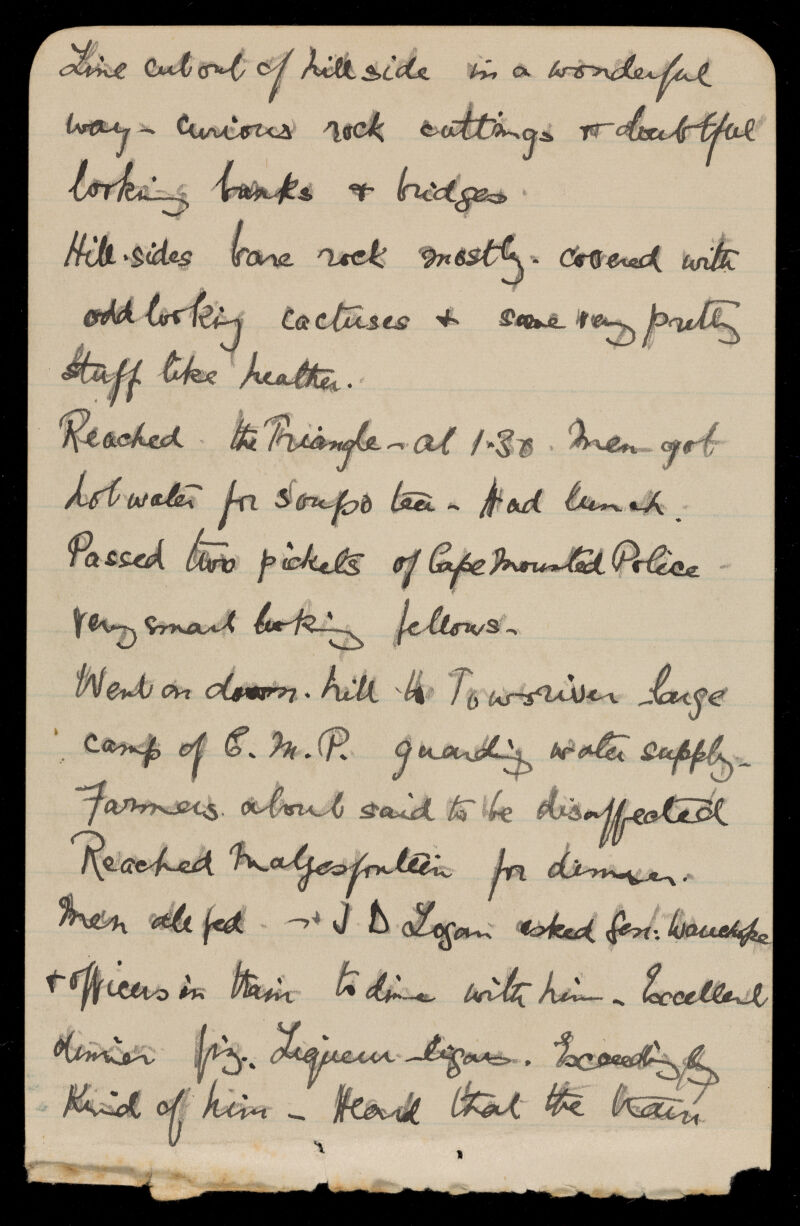 Line cut out of hill side in a wonderful
way - curious rock cuttings & doubtful
looking banks & bridges
Hill-sides bare rock mostly - covered with
odd looking cactuses & some very pretty
stuff like heather.
Reached the Triangle - at 1.30. Men got
hot water for soup & tea - Had lunch.
Passed two pickets of Cape Mounted Police
very smart looking fellows -
Went on down hill to Towsriver large
camp of C. M. P. guarding water supply -
Farmers about said to be disaffected
Reached Matjesfontein for dinner.
Men all fed - J D Logan asked Gen: Wauchope
& officers in train to dine with him - Excellent
dinner fiz. Liqueur - cigars. Exceedingly
Kind of him - Heard that the train